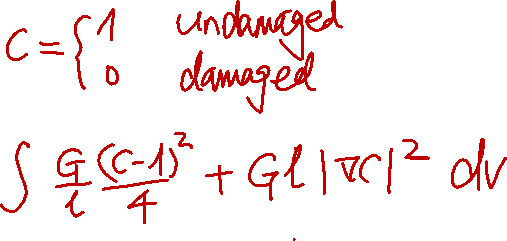 C = { 1 undamaged
0 damaged
∫ G/l (C-1)²/4 + Gl |∇C|² dv